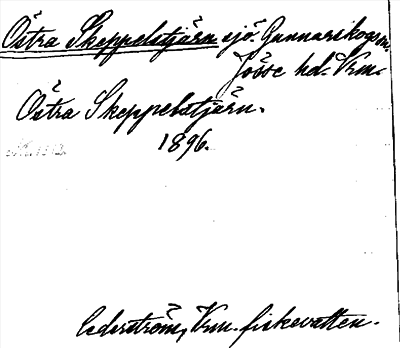 Östra Skeppelstjärn sjö. Gunnarskogs sn.
Jösse hd. Vrm.
Östra Skeppelstjärn.
1896.
Cederström, Vrm. fiskevatten.